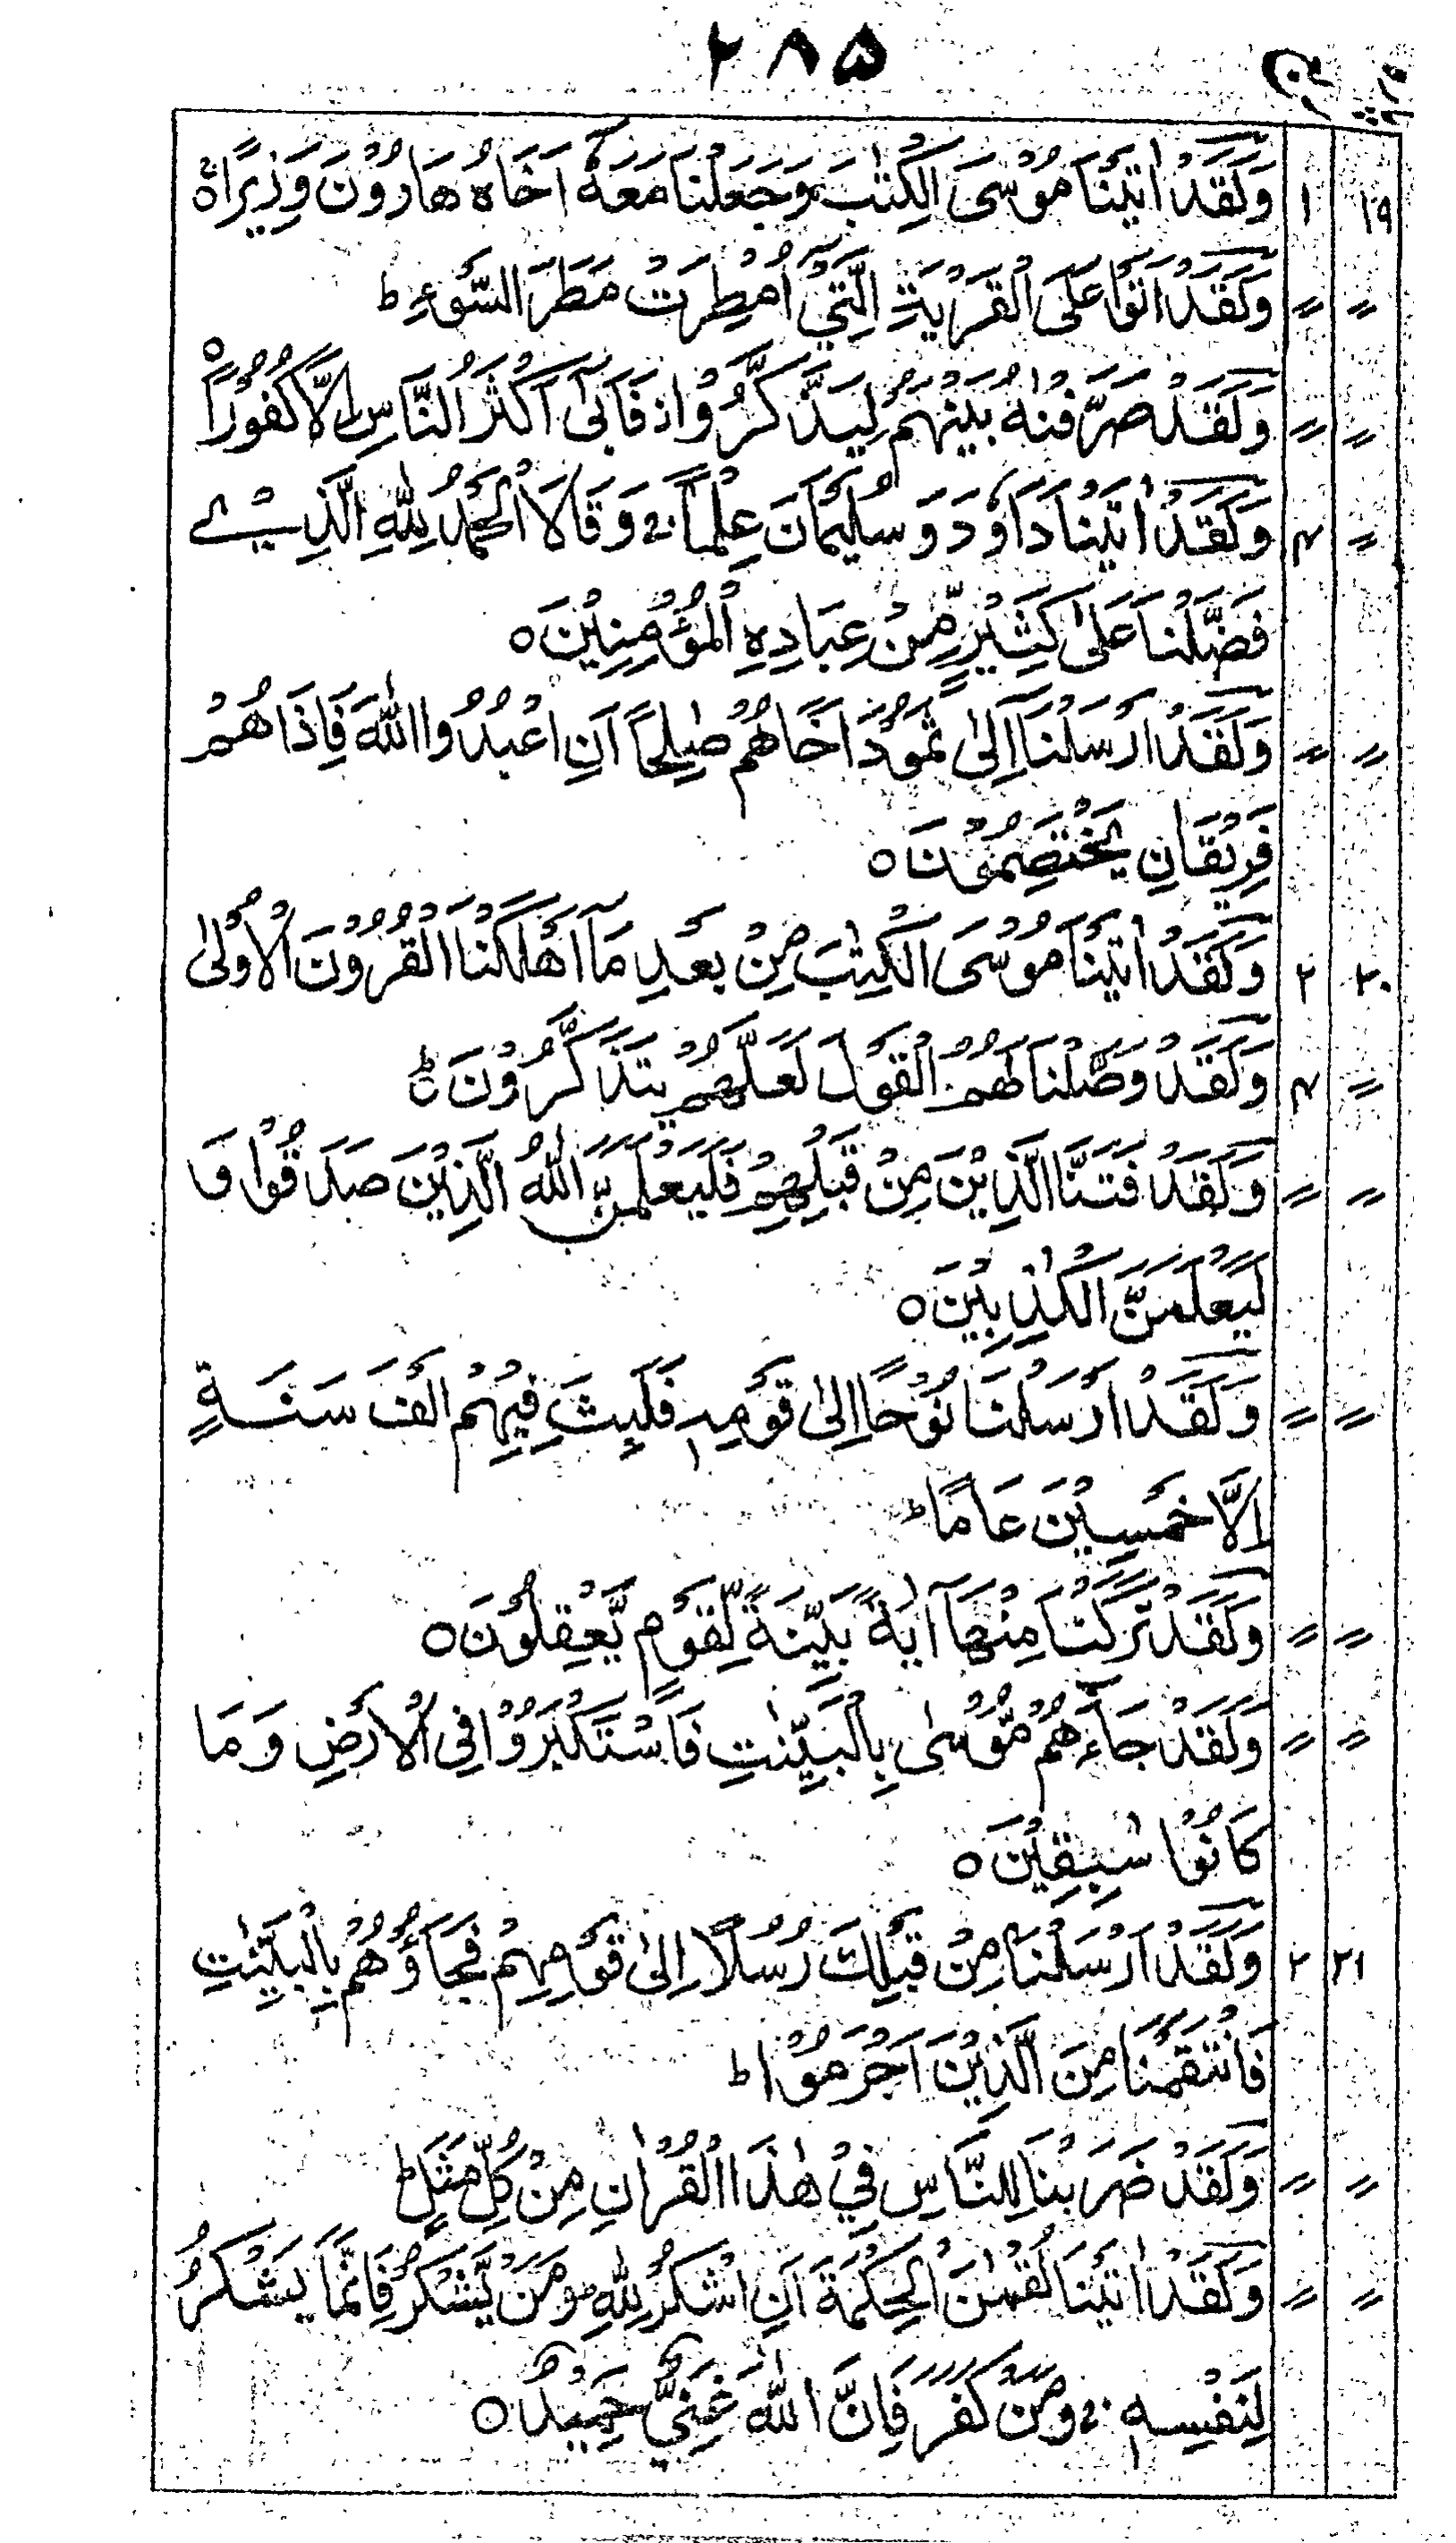 ۲۸۵
وَلَقَدْ اٰتَيْنَا مُوْسَى الْكِتٰبَ وَجَعَلْنَا مَعَهٗٓ اَخَاهُ هَارُوْنَ وَزِيْرًا ۱ ۱۹
وَلَقَدْ اَتَوْا عَلَى الْقَرْيَةِ الَّتِيْٓ اُمْطِرَتْ مَطَرَ السَّوْءِ ط 〃 〃
وَلَقَدْ صَرَّفْنٰهُ بَيْنَهُمْ لِيَذَّكَّرُوْا ز فَاَبٰىٓ اَكْثَرُ النَّاسِ اِلَّا كُفُوْرًا ۝ 〃 〃
وَلَقَدْ اٰتَيْنَا دَاوٗدَ وَ سُلَيْمَانَ عِلْمًا ج وَقَالَا الْحَمْدُ لِلّٰهِ الَّذِيْ ۴ 〃
فَضَّلَنَا عَلٰى كَثِيْرٍ مِّنْ عِبَادِهِ الْمُؤْمِنِيْنَ ۝
وَلَقَدْ اَرْسَلْنَآ اِلٰى ثَمُوْدَ اَخَاهُمْ صٰلِحًا اَنِ اعْبُدُوا اللّٰهَ فَاِذَا هُمْ 〃 〃
فَرِيْقَانِ يَخْتَصِمُوْنَ ۝
وَلَقَدْ اٰتَيْنَا مُوْسَى الْكِتٰبَ مِنْۢ بَعْدِ مَآ اَهْلَكْنَا الْقُرُوْنَ الْاُوْلٰى ۲ ۲۰
وَلَقَدْ وَصَّلْنَا لَهُمُ الْقَوْلَ لَعَلَّهُمْ يَتَذَكَّرُوْنَ ط ۴ 〃
وَلَقَدْ فَتَنَّا الَّذِيْنَ مِنْ قَبْلِهِمْ فَلَيَعْلَمَنَّ اللّٰهُ الَّذِيْنَ صَدَقُوْا وَ 〃 〃
لَيَعْلَمَنَّ الْكٰذِبِيْنَ ۝
وَلَقَدْ اَرْسَلْنَا نُوْحًا اِلٰى قَوْمِهٖ فَلَبِثَ فِيْهِمْ اَلْفَ سَنَةٍ 〃 〃
اِلَّا خَمْسِيْنَ عَامًا ط
وَلَقَدْ تَّرَكْنَا مِنْهَآ اٰيَةً بَيِّنَةً لِّقَوْمٍ يَّعْقِلُوْنَ ۝ 〃 〃
وَلَقَدْ جَآءَهُمْ مُّوْسٰى بِالْبَيِّنٰتِ فَاسْتَكْبَرُوْا فِى الْاَرْضِ وَمَا 〃 〃
كَانُوْا سٰبِقِيْنَ ۝
وَلَقَدْ اَرْسَلْنَا مِنْ قَبْلِكَ رُسُلًا اِلٰى قَوْمِهِمْ فَجَآؤُهُمْ بِالْبَيِّنٰتِ ۲ ۲۱
فَانْتَقَمْنَا مِنَ الَّذِيْنَ اَجْرَمُوْا ط
وَلَقَدْ ضَرَبْنَا لِلنَّاسِ فِيْ هٰذَا الْقُرْاٰنِ مِنْ كُلِّ مَثَلٍ ط 〃 〃
وَلَقَدْ اٰتَيْنَا لُقْمٰنَ الْحِكْمَةَ اَنِ اشْكُرْ لِلّٰهِ ط وَمَنْ يَّشْكُرْ فَاِنَّمَا يَشْكُرُ 〃 〃
لِنَفْسِهٖ ج وَمَنْ كَفَرَ فَاِنَّ اللّٰهَ غَنِيٌّ حَمِيْدٌ ۝